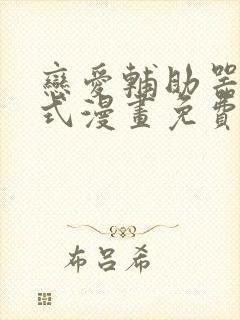 戀愛輔助器
式漫畫免費
布吕希